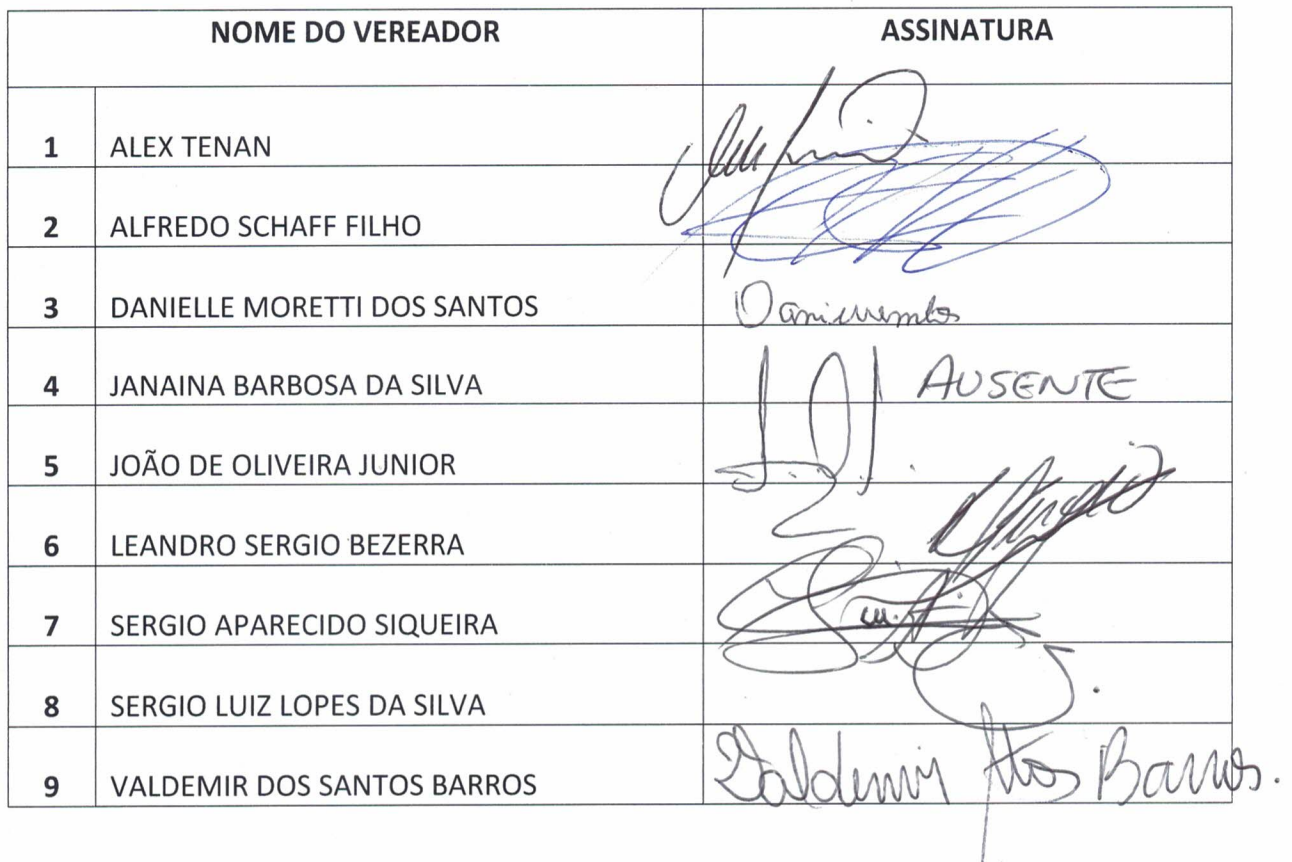 NOME DO VEREADOR ASSINATURA
1 ALEX TENAN
2 ALFREDO SCHAFF FILHO
3 DANIELLE MORETTI DOS SANTOS
4 JANAINA BARBOSA DA SILVA AUSENTE
5 JOÃO DE OLIVEIRA JUNIOR
6 LEANDRO SERGIO BEZERRA
7 SERGIO APARECIDO SIQUEIRA
8 SERGIO LUIZ LOPES DA SILVA
9 VALDEMIR DOS SANTOS BARROS Valdemir Stos Barros.